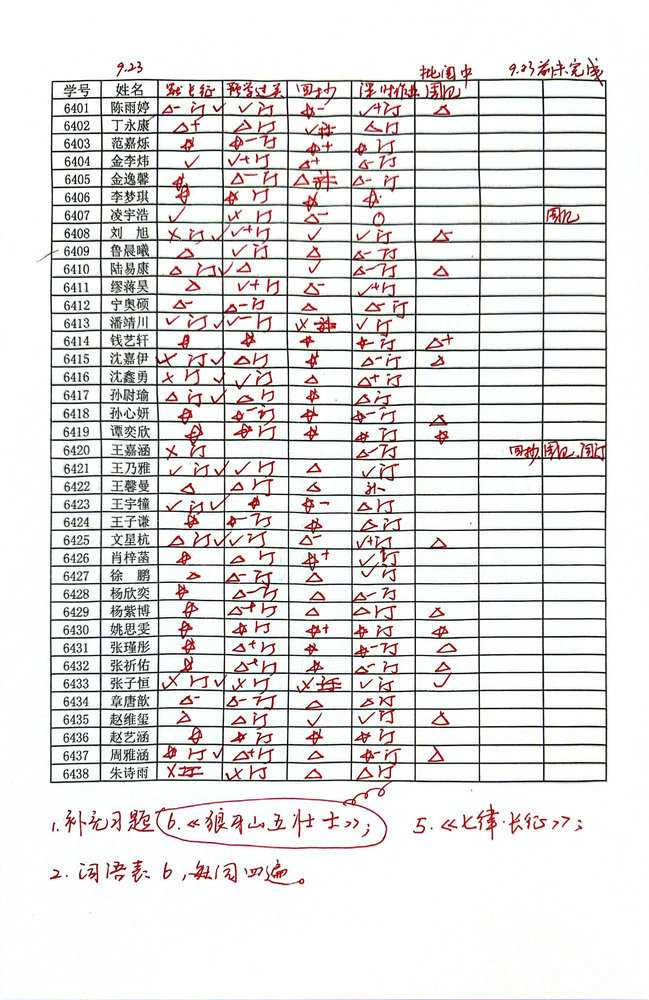 9.23 批阅中 9.23前未完成
学号 姓名 默长征 默学过关 回抄 课时作业 周记
6401 陈雨婷 △- 订 ✓ ✓ 订 ☆- ✓+订 △
6402 丁永康 △+ △订 ✓ △订
6403 范嘉烁 ☆ ☆-订 ☆+ ☆订
6404 金李炜 ✓ ✓+订 △+ △-订
6405 金逸馨 ☆ △-订 △ △-订
6406 李梦琪 ☆ ☆订 ☆ ☆
6407 凌宇浩 ✓ ×订 △- ○ 周记
6408 刘旭 ×订 ✓ ✓+订 ✓ ✓订 △-
6409 鲁晨曦 △ ✓订 △ △-订
6410 陆易康 △订 ✓ △ ✓ △-订 △
6411 缪蒋昊 △ ✓+订 △- ✓+订
6412 宁奥硕 △- △-订 △ △-订
6413 潘靖川 ✓订 ✓ ✓-订 × ✓订
6414 钱艺轩 ☆ ☆ ☆ ☆-订 △+
6415 沈嘉伊 ×订 ✓ △订 ☆ △-订 △
6416 沈鑫勇 ×订 ✓ ✓订 △ △+订
6417 孙尉瑜 △订 ✓ △订 ☆ △订
6418 孙心妍 ☆ ☆-订 ☆ ☆-订 △
6419 谭奕欣 ☆ ☆订 ☆ ☆订 ☆
6420 王嘉涵 ×订 △-订 回抄,周记,周订
6421 王乃雅 ✓订 ✓ ✓订 △ ✓订
6422 王馨曼 △ △订 △ 补
6423 王宇犝 ✓订 ✓ ☆ ☆- △订
6424 王子谦 ☆ ☆-订 ☆ △订
6425 文星杭 △订 ✓ ✓订 △- ✓+订 △
6426 肖梓菡 ☆ △订 ☆+ ✓订
6427 徐鹏 △ △-订 △ ✓订
6428 杨欣奕 ☆ △-订 △ △-订
6429 杨紫博 ☆ △+订 △ △订 △
6430 姚思雯 ☆ ☆订 ☆+ ☆-订 ☆
6431 张瑾彤 ☆ △+订 ☆ ☆-订 △
6432 张祈佑 ☆ △+订 ☆ △-订 △
6433 张子恒 ×订 ✓ ×订 × ✓订 ✓
6434 章唐歆 △- △-订 △ △订
6435 赵维玺 △ △订 ✓ ✓订 △
6436 赵艺涵 ☆ ☆订 ☆ ☆订
6437 周雅涵 ☆订 ✓ △+订 △ ☆-订 △
6438 朱诗雨 × ×订 △ △订
1.补充习题 6.《狼牙山五壮士》; 5.《七律·长征》;
2.词语表:6,每词四遍。